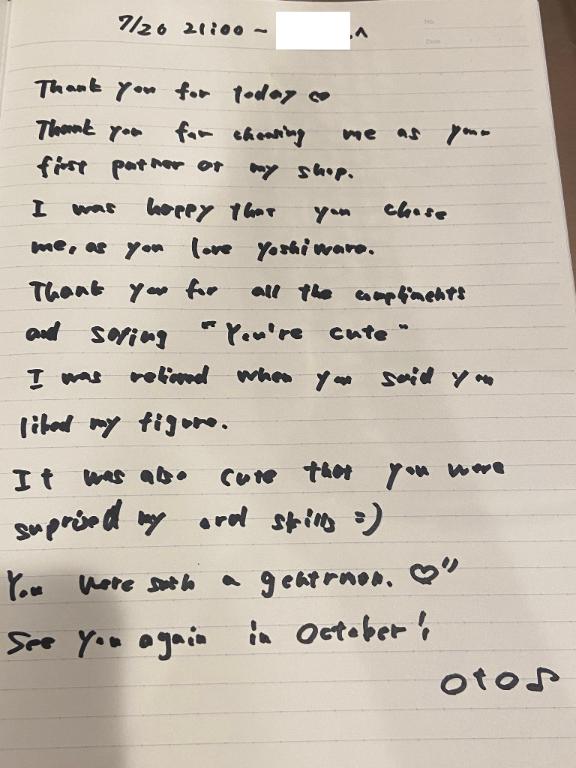 7/26 21:00~ へ
Thank you for today ♡
Thank you for choosing me as your
first patner at my shop.
I was happy that you chose
me, as you love Yoshiwara.
Thank you for all the compliments
and saying "You're cute"
I was relieved when you said you
liked my figure.
It was also cute that you were
suprised my oral skills =)
You were such a gentrman. ♡"
See you again in October!
oto♪
No.
Date